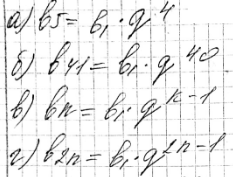 а) b5 = b1 · q^4
б) b41 = b1 · q^40
в) bn = b1 · q^n-1
г) b2n = b1 · q^2n-1